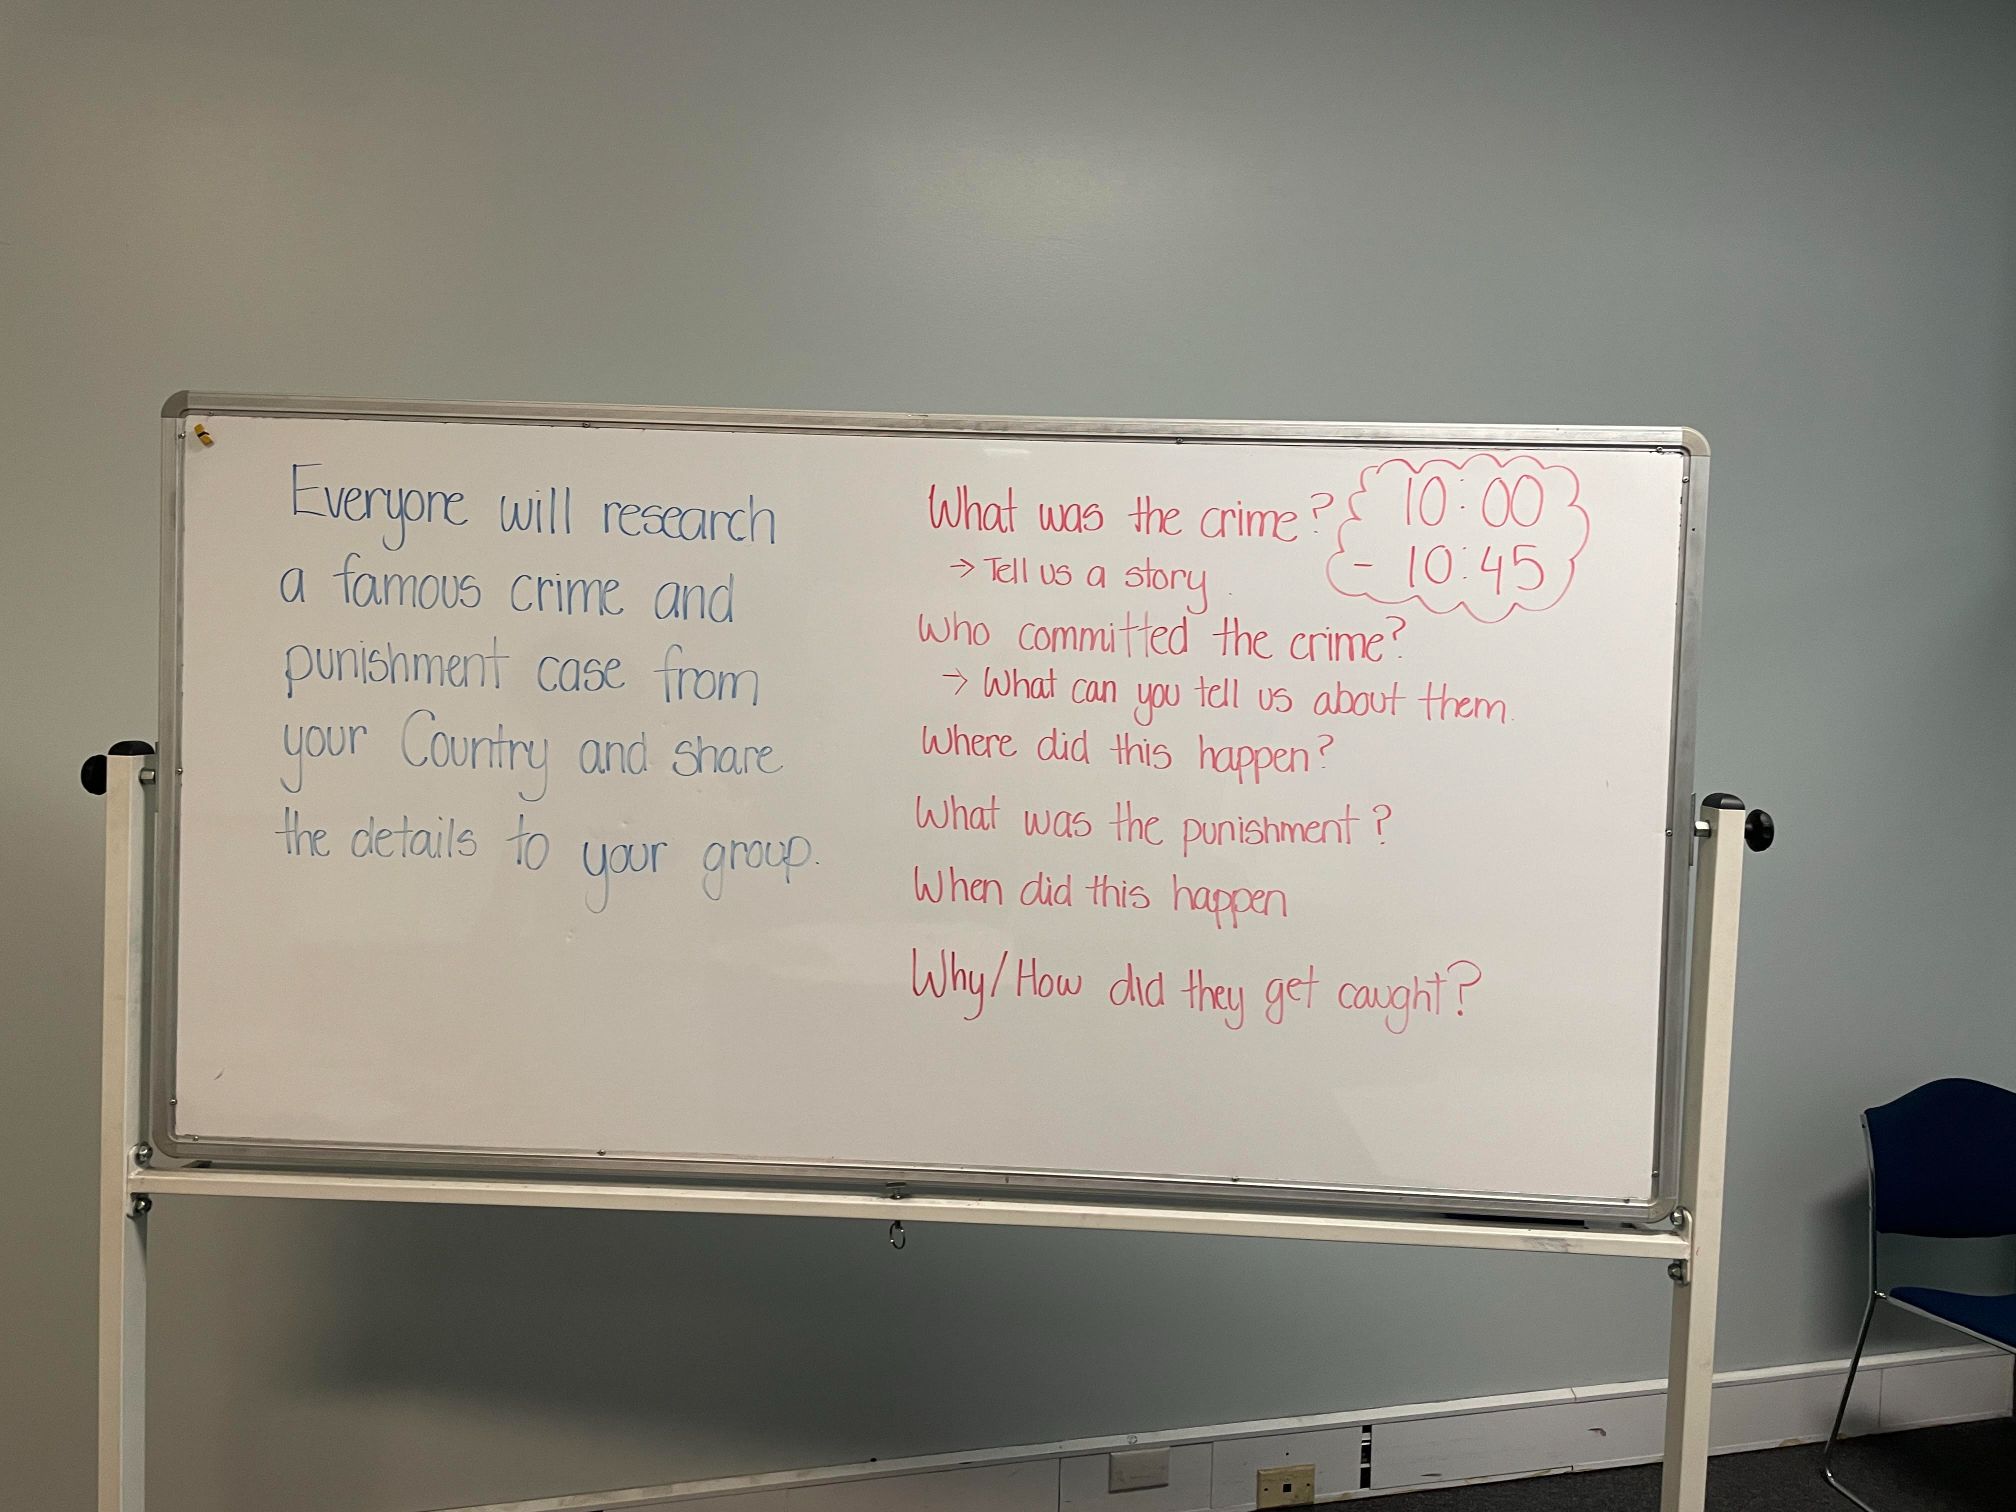 Everyone will research
a famous crime and
punishment case from
your Country and share
the details to your group.
What was the crime?
→ Tell us a story.
Who committed the crime?
→ What can you tell us about them.
Where did this happen?
What was the punishment?
When did this happen
Why/How did they get caught?
10:00
- 10:45